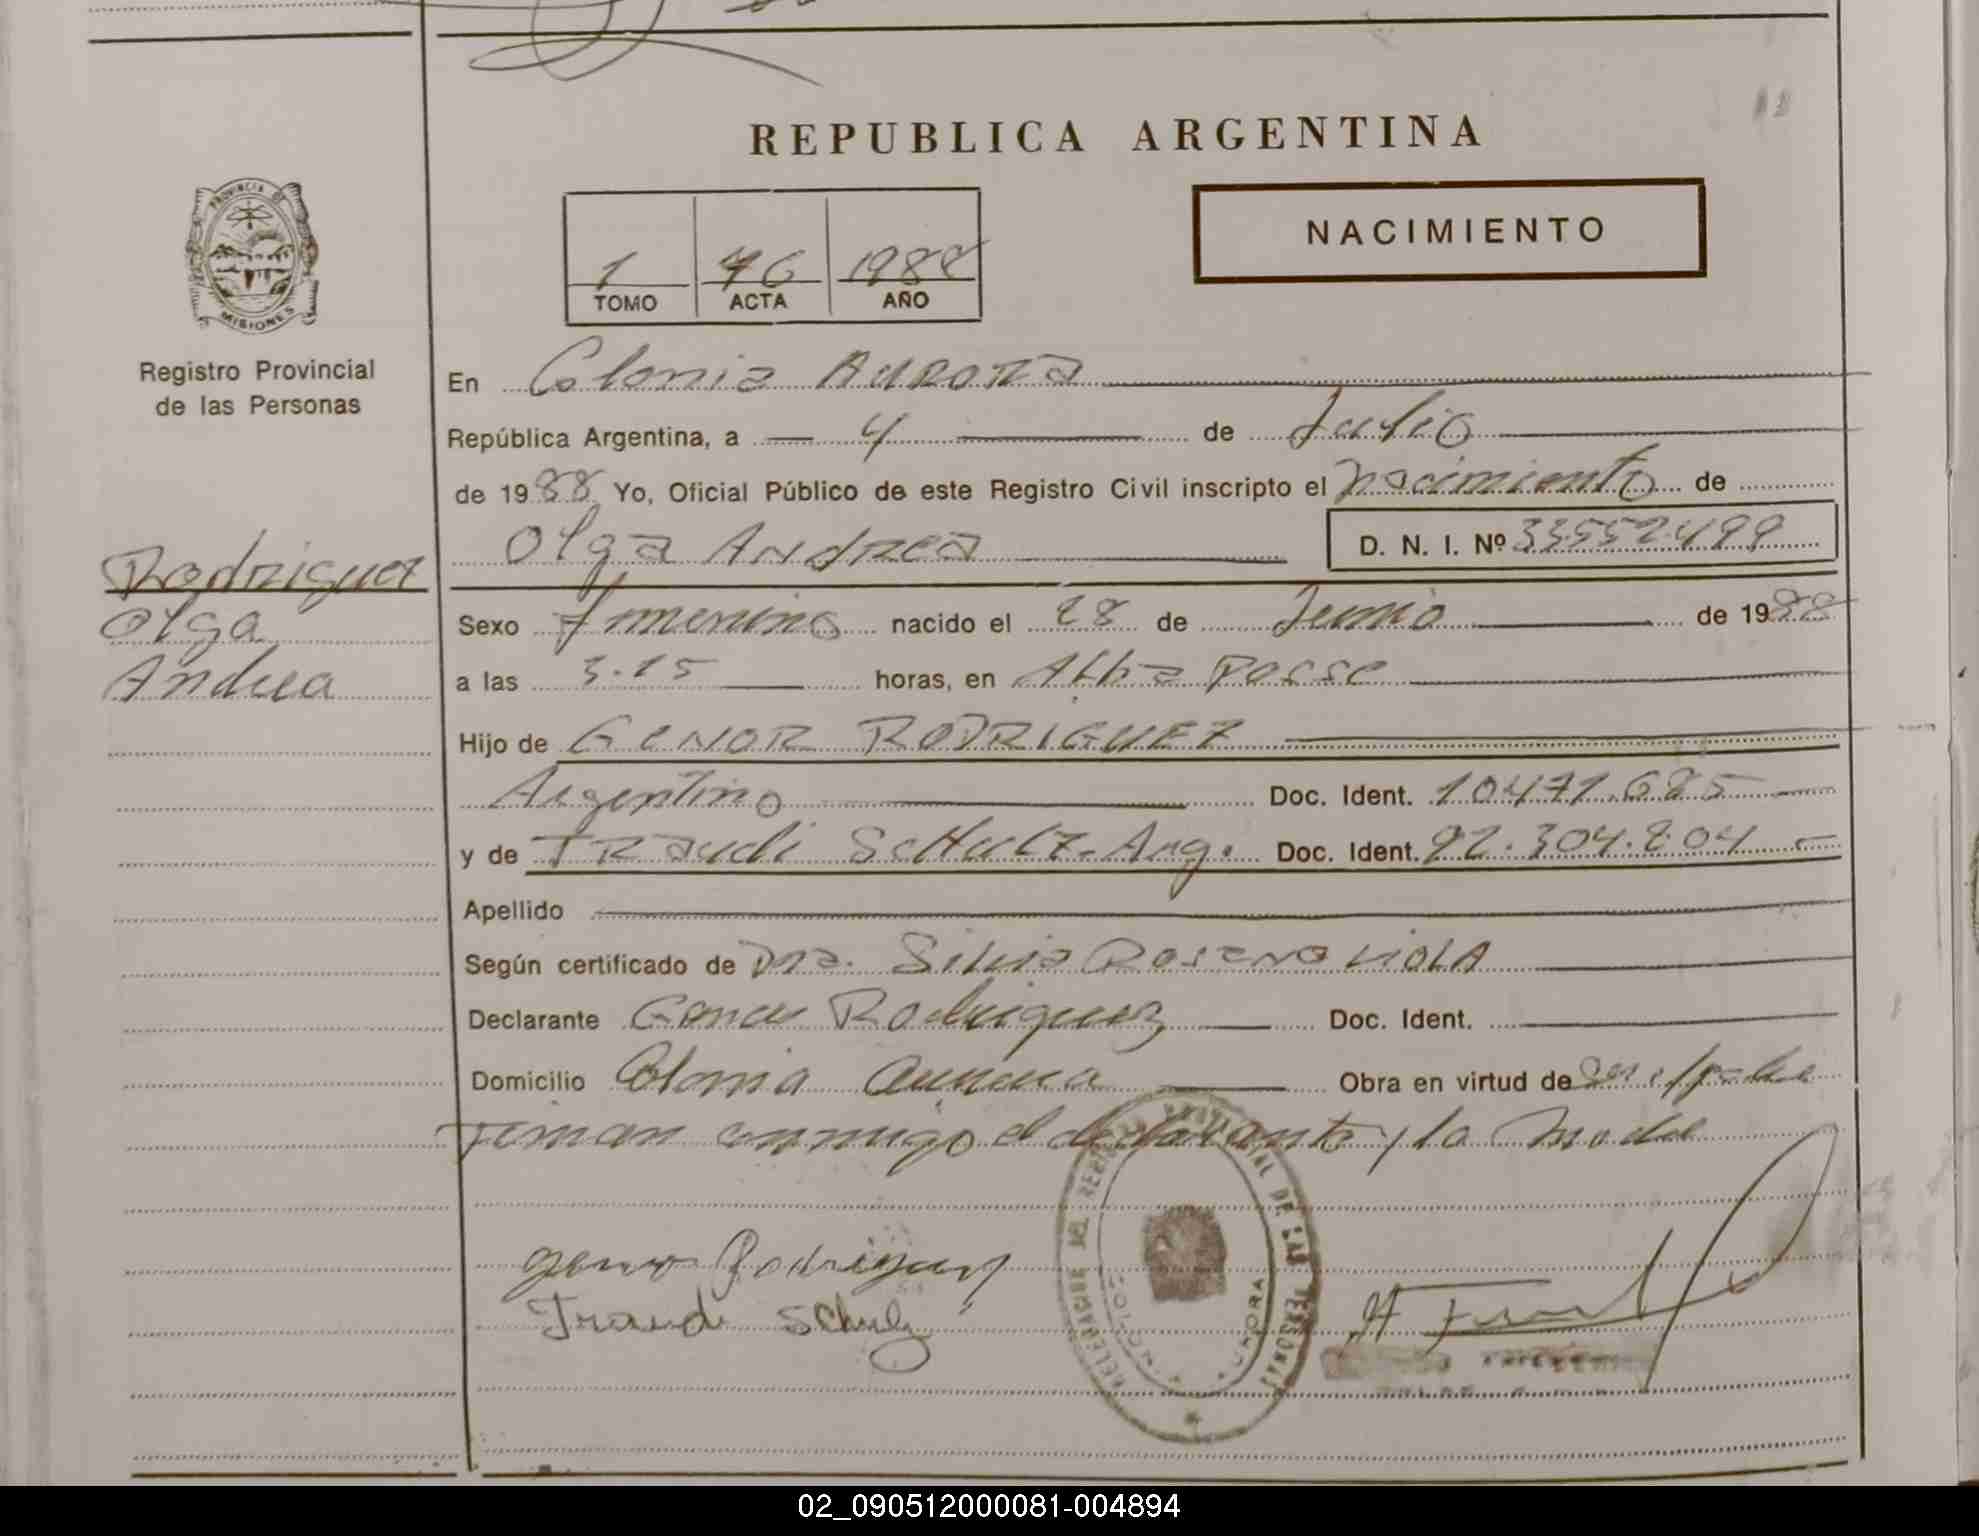 REPUBLICA ARGENTINA
NACIMIENTO
1 76 1988
TOMO ACTA AÑO
PROVINCIA DE
MISIONES
Registro Provincial
de las Personas
En Colonia Aurora
República Argentina, a 4 de Julio
de 1988 Yo, Oficial Público de este Registro Civil inscripto el nacimiento de
Olga Andrea D. N. I. Nº 33552499
Rodriguez
Olga
Andrea
Sexo femenino nacido el 28 de Junio de 1988
a las 3.15 horas, en Alba Posse
Hijo de GENOR RODRIGUEZ
Argentino Doc. Ident. 10471.685
y de TRaudi ScHulz-Arg. Doc. Ident. 92.304.804
Apellido
Según certificado de Dra. Silvia
Declarante Genor Rodriguez Doc. Ident.
Domicilio Colonia Aurora Obra en virtud de
Firman conmigo el declarante y la Madre
DELEGACION DEL REGISTRO PROVINCIAL DE LAS PERSONAS
COLONIA AURORA
Genor Rodriguez
Traudi Schulz
02_090512000081-004894